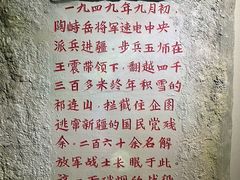 一九四九年九月初,
陶峙岳将军速电中央
派兵进疆。步兵五师在
王震带领下,翻越四千
三百多米终年积雪的
祁连山,拦截住企图
逃窜新疆的国民党残
余,二百六十余名解
放军战士长眠于此。